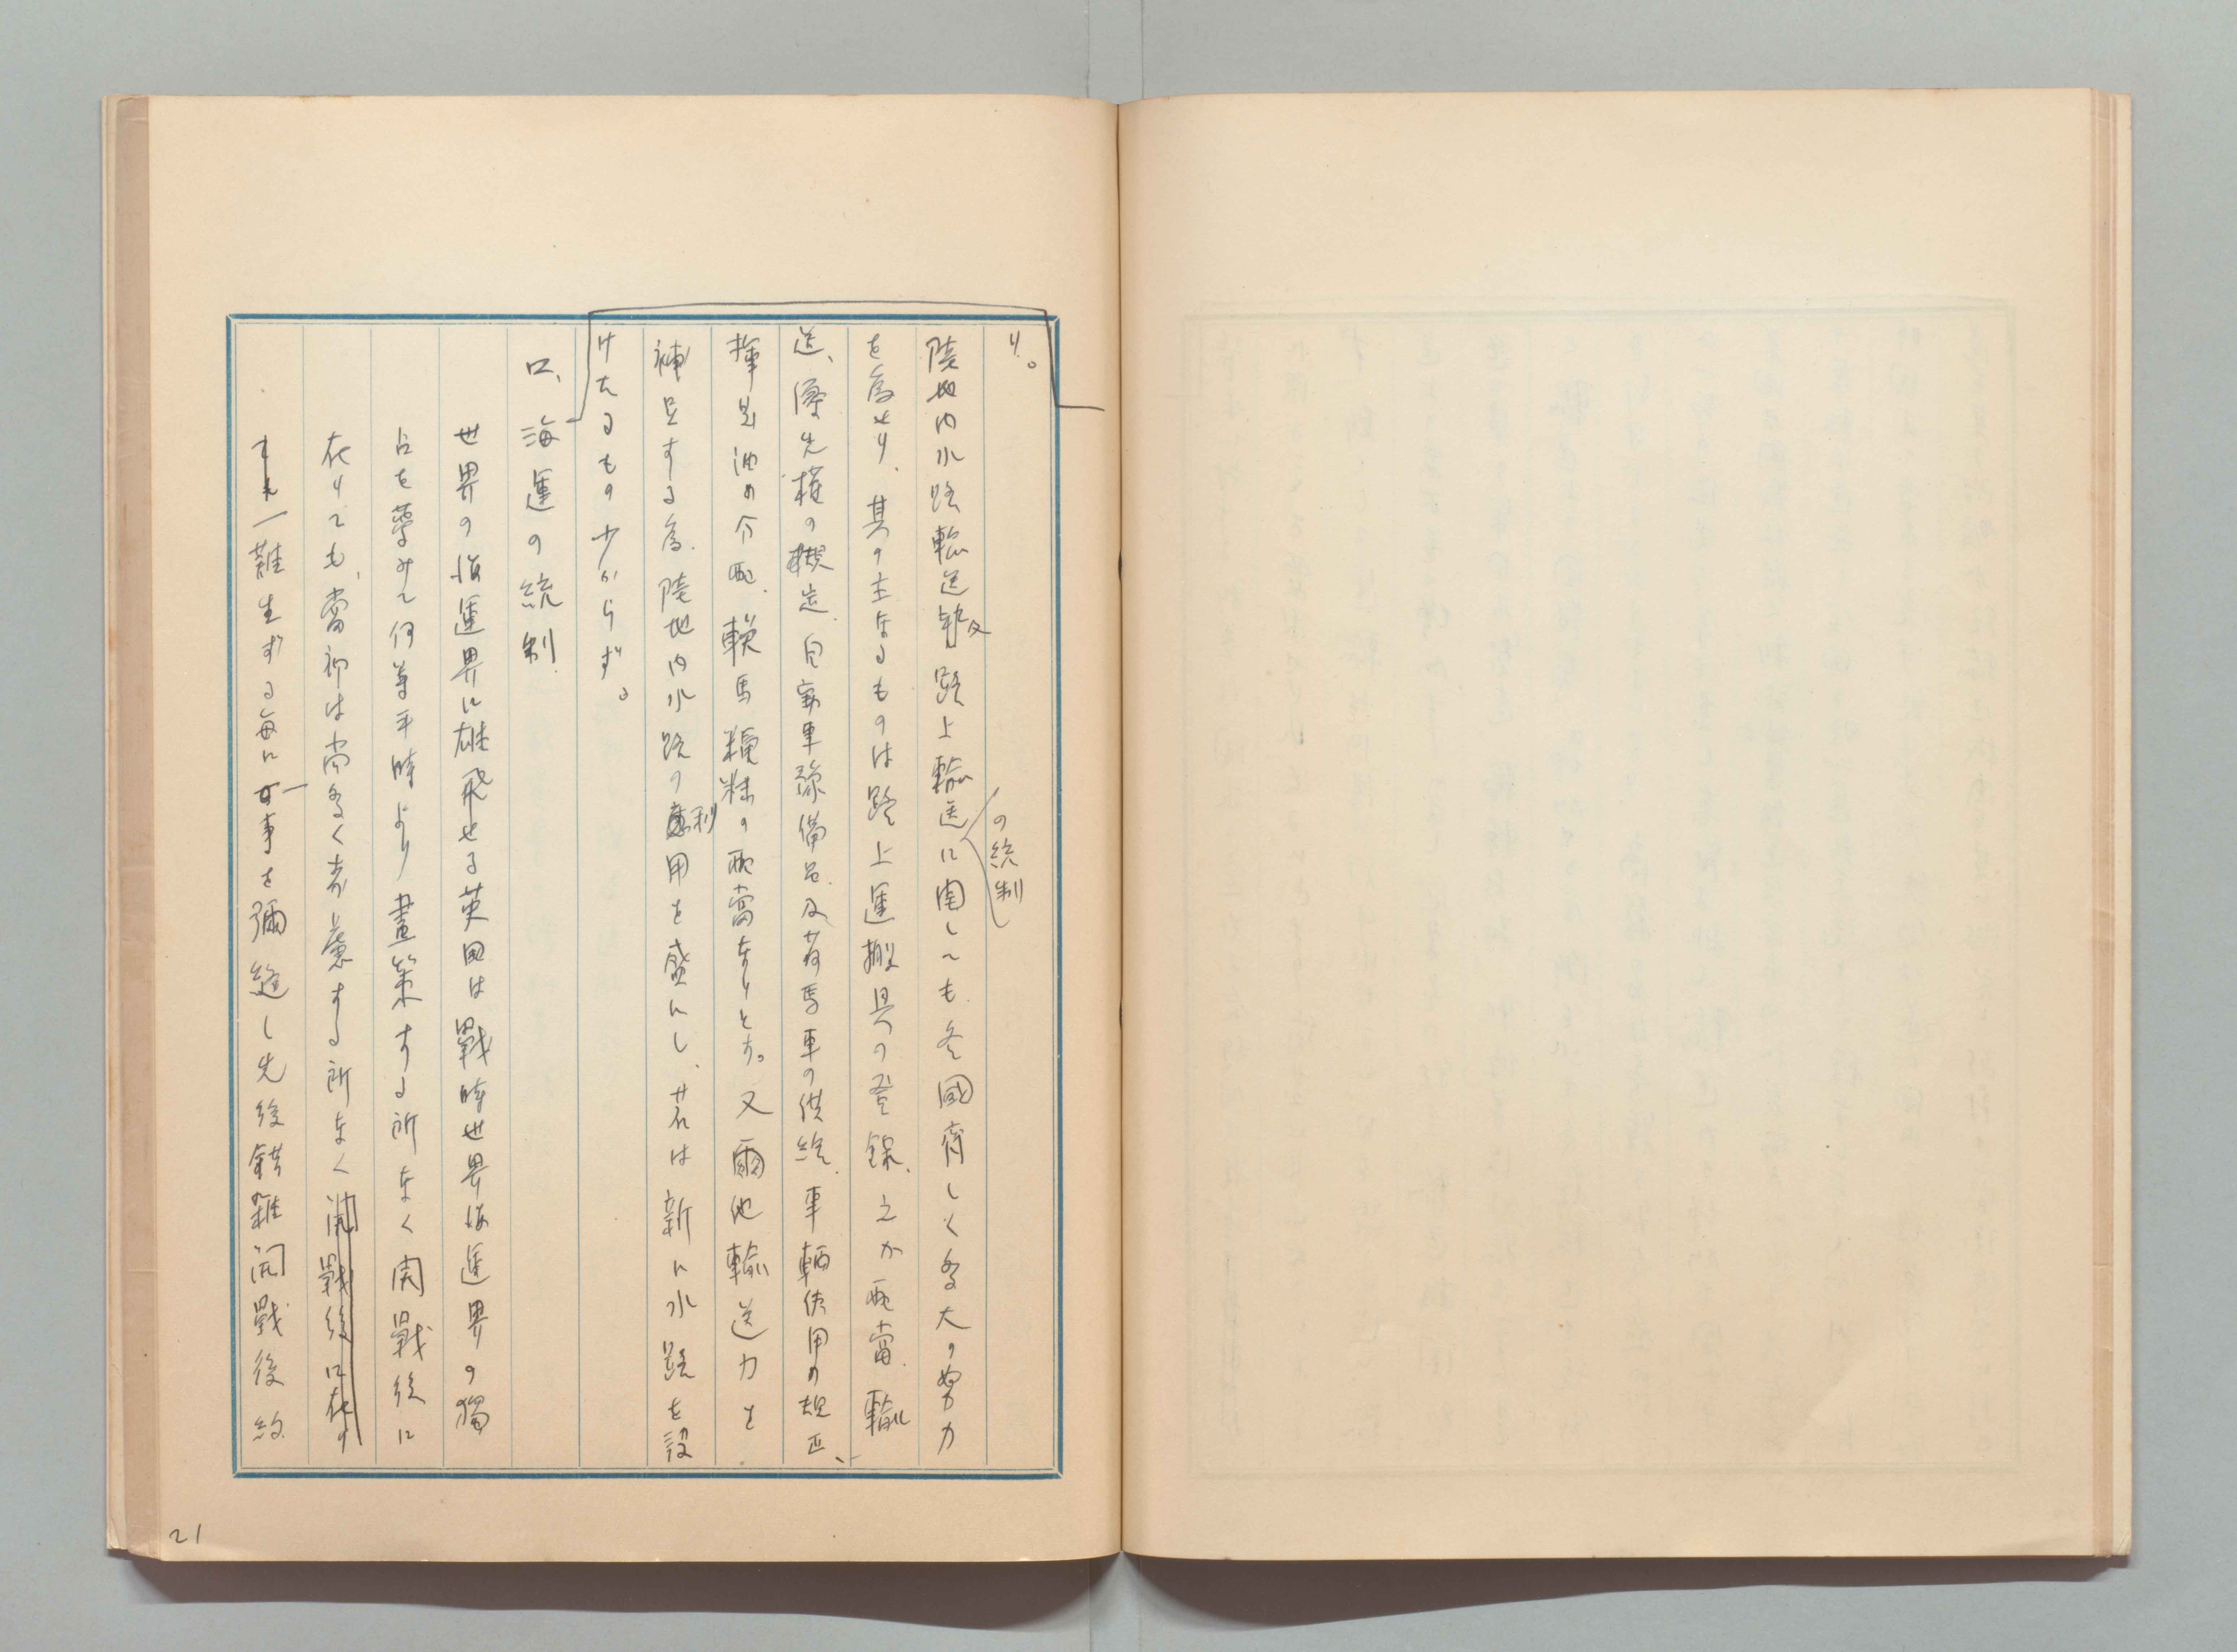 り。
陸地内水路輸送及路上輸送の統制に関しても、各國齊しく多大の努力
を為せり、其の主なるものは路上運搬具の登録、之か配當、輸
送、優先権の規定、自動車予備品、及荷馬車の供給、車輛使用の規正、
揮発油の分配、輓馬糧秣の配當なりとす。又爾他輸送力を
補足する為、陸地内水路の利用を盛にし、若は新に水路を設
けたるもの少からず。
ロ、海運の統制
世界の海運界に雄飛せる英国は戰時世界海運界の獨
占を夢みて何等平時より畫策する所なく開戰後に
在りても、當初は尚多く考慮する所なく
一難生ずる毎に事を彌縫し先後錯雜開戰後約
21